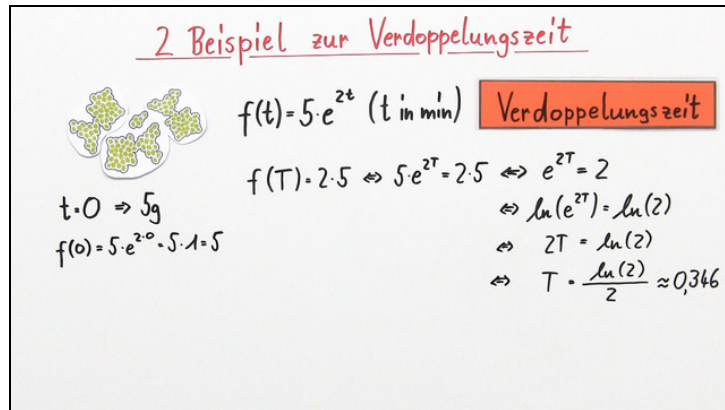 2 Beispiel zur Verdoppelungszeit
f(t)=5·e^{2t} (t in min)
Verdoppelungszeit
f(T)=2·5 ⇔ 5·e^{2T}=2·5 ⇔ e^{2T}=2
⇔ ln(e^{2T})=ln(2)
⇔ 2T=ln(2)
⇔ T=ln(2)/2≈0,346
t=0 ⇒ 5g
f(0)=5·e^{2·0}=5·1=5